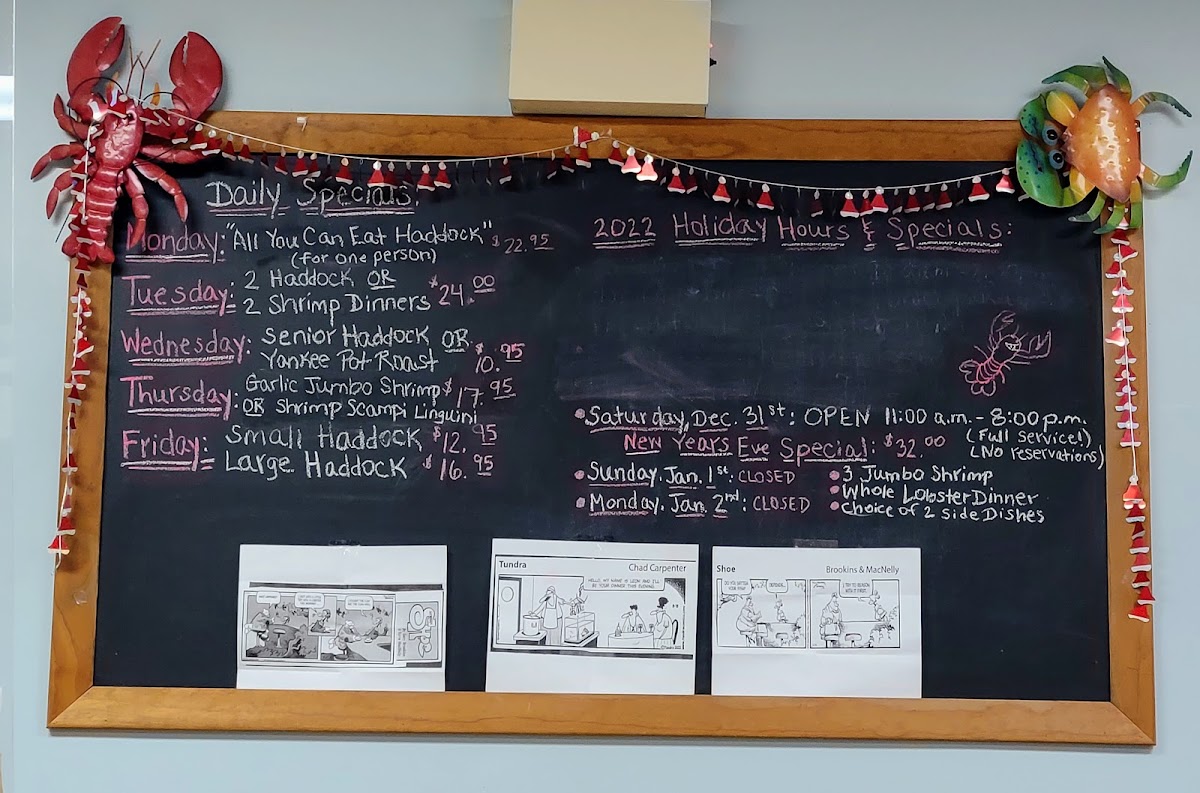 Daily Specials:
Monday: "All You Can Eat Haddock" $22.95
(for one person)
Tuesday: 2 Haddock OR
2 Shrimp Dinners $24.00
Wednesday: Senior Haddock OR
Yankee Pot Roast $10.95
Thursday: Garlic Jumbo Shrimp $17.95
OR Shrimp Scampi Linguini
Friday: Small Haddock $12.95
Large Haddock $16.95
2022 Holiday Hours & Specials:
• Saturday, Dec. 31st: OPEN 11:00 a.m. - 8:00 p.m.
(Full Service!)
(No reservations)
New Years Eve Special: $32.00
• 3 Jumbo Shrimp
• Whole Lobster Dinner
• Choice of 2 Side Dishes
• Sunday. Jan. 1st: CLOSED
• Monday. Jan. 2nd: CLOSED
Tundra Chad Carpenter
HELLO, MY NAME IS LEON AND I'LL
BE YOUR DINNER THIS EVENING.
Shoe Brookins & MacNelly